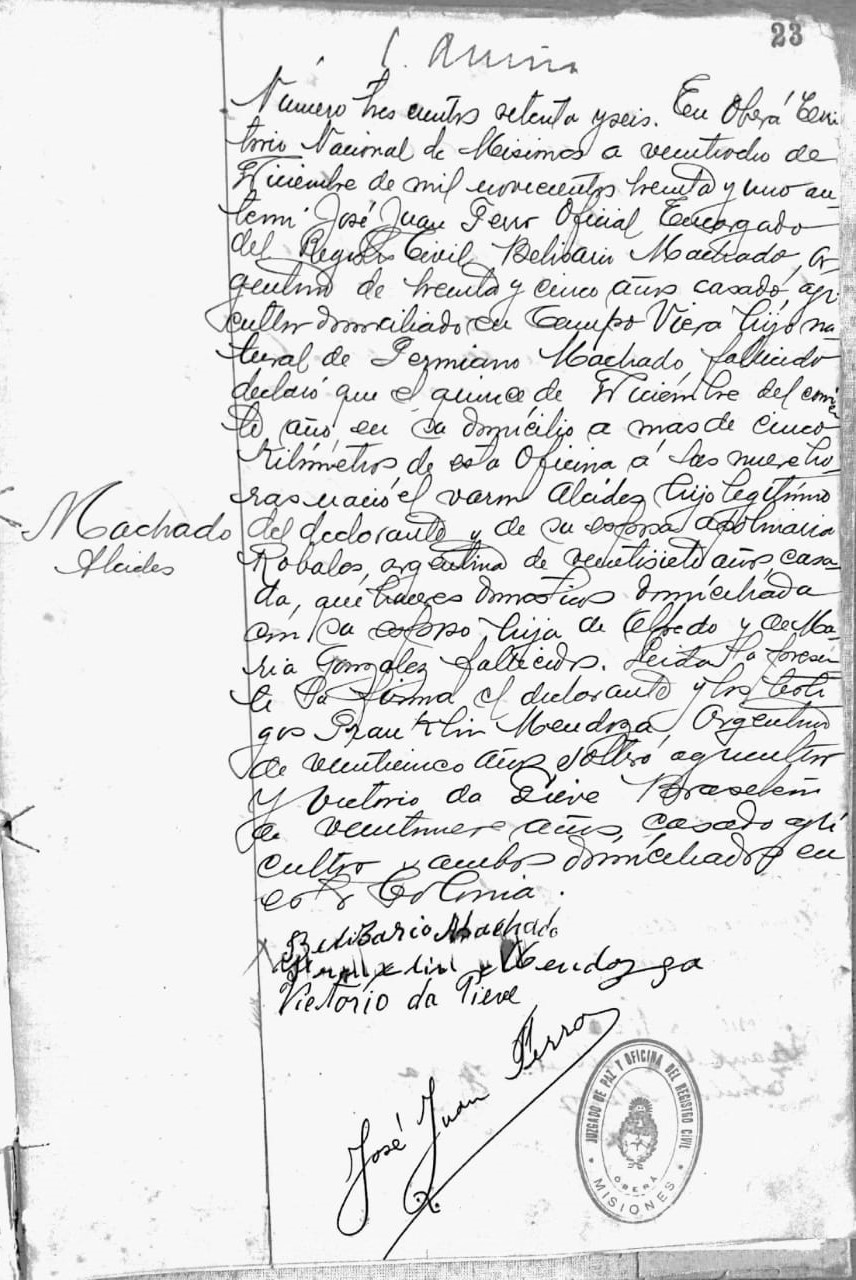 23
Número tres cientos setenta y seis. En Oberá Terri
torio Nacional de Misiones a veintiocho de
Diciembre de mil novecientos treinta y uno an-
te mi José Juan Ferro Oficial Encargado
del Registro Civil Belisario Machado, ar-
gentino de treinta y cinco años casado, agri
cultor domiciliado en Campo Viera hijo na-
tural de Fermiano Machado, fallecido
declaró que el quince de Diciembre del corrien
te año, en su domicilio a mas de cinco
Kilómetros de esta Oficina á las nueve ho-
ras nació el varon Alcides hijo legítimo
Machado
Alcides
del declarante y de su esposa Apolinaria
Robalos, argentina de veintisiete años, casa-
da, quehaceres domésticos domiciliada
con su esposo hija de Alfredo y de Ma-
ria Gonzalez fallecidos. Leida la presen-
te la firma el declarante y los testi
gos Franklin Mendoza, Argentino
de veinticinco años soltero agricultor
y Victorio da Pieve Brasileño
de veintinueve años, casado agri
cultor y ambos domiciliados en
esta Colonia.
Belibario Machado
Franklin Mendozga
Victório da Pieve
José Juan Ferro
JUZGADO DE PAZ Y OFICINA DEL REGISTRO CIVIL
OBERÁ
MISIONES